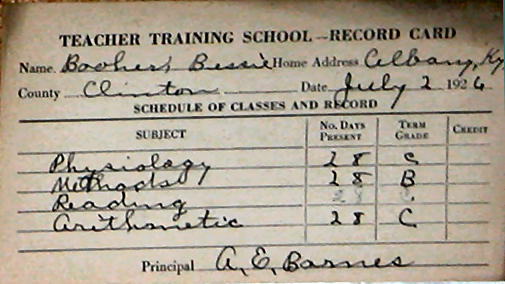 TEACHER TRAINING SCHOOL—RECORD CARD
Name Booher, Bessie Home Address Albany, Ky
County Clinton Date July 2 1926
SCHEDULE OF CLASSES AND RECORD
SUBJECT No. DAYS PRESENT TERM GRADE CREDIT
Physiology 28 C
Methods 28 B
Reading 28
Arithmetic 28 C
Principal A. E. Barnes